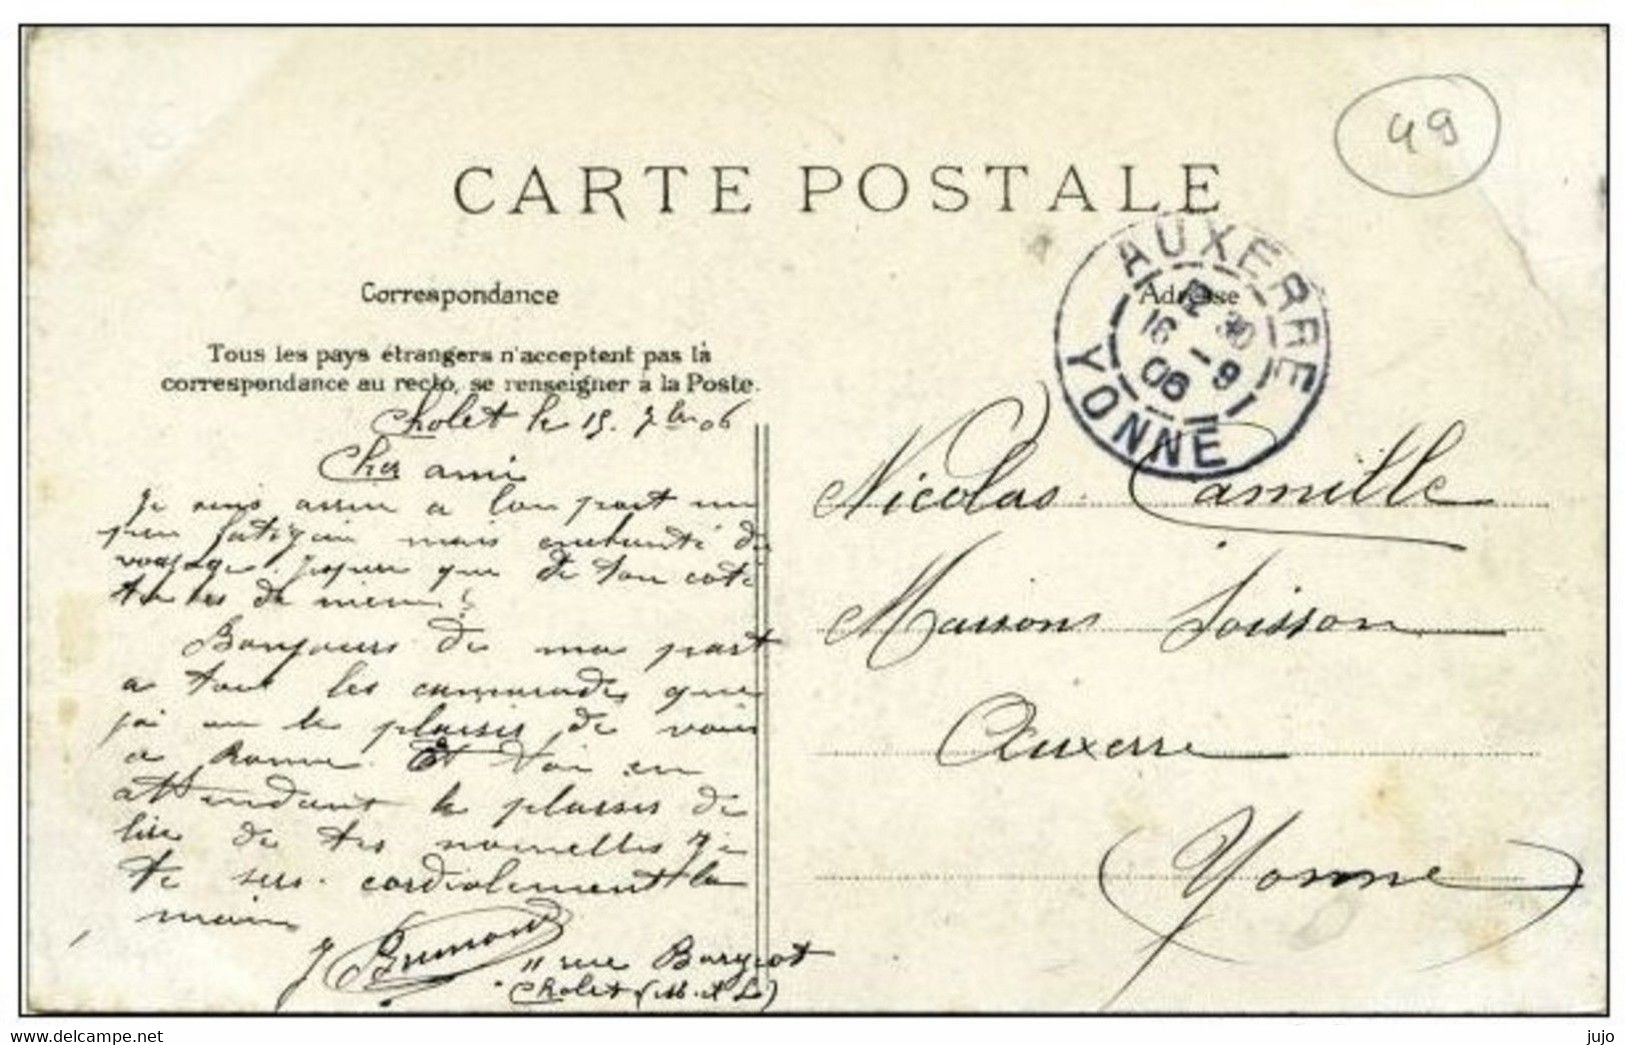 49
CARTE POSTALE
Correspondance
Adresse
Tous les pays étrangers n'acceptent pas la
correspondance au recto, se renseigner à la Poste.
AUXERRE
16 - 9
06
YONNE
Cholet le 15. 7bre 06
Cher ami
Je suis arrivé a bon port un
peu fatigué mais enchanté du
voyage. J'espère que de ton coté
tu es de meme
Bonjours de ma part
a tous les camarades que
j'ai eu le plaisir de voir
a Et Toi en
attendant le plaisir de
lire de tes nouvelles Je
te sers cordialement la
main
11 rue
Cholet (M. et L.)
Nicolas Camille
Maison Soisson
Auxerre
(Yonne)
jujo